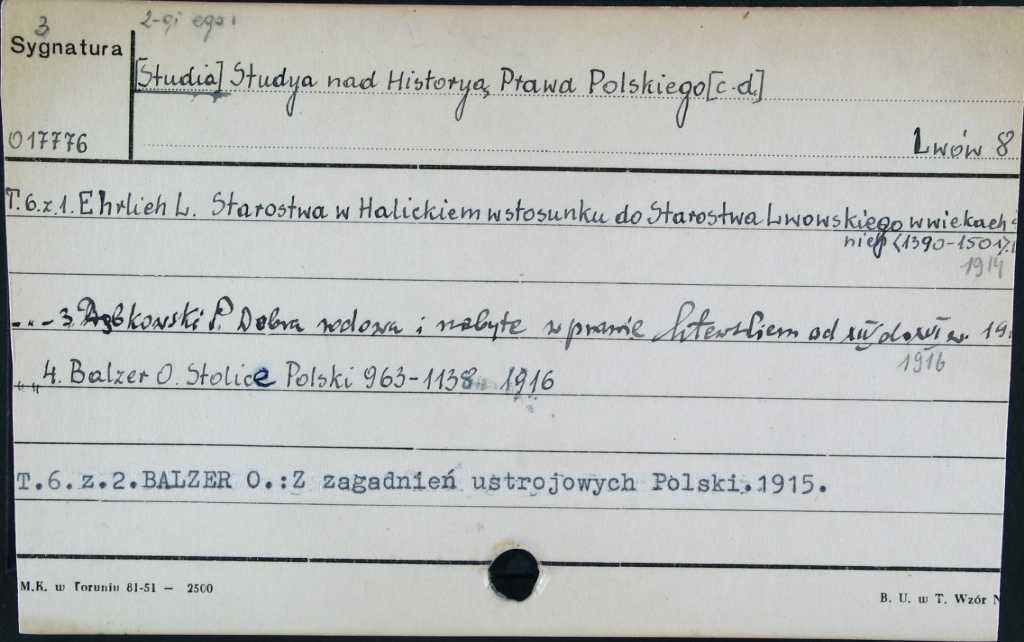 3 2-gi egz.
Sygnatura
[Studia] Studya nad Historyą Prawa Polskiego [c.d.]
017776 Lwów 8
T.6.z.1. Ehrlich L. Starostwa w Halickiem w stosunku do Starostwa Lwowskiego w wiekach
nich (1390-1501).
1914
" - 3. Dąbkowski P. Dobra rodowe i nabyte w prawie litewskiem od XIV do XVI w. 19
1916
" " 4. Balzer O. Stolice Polski 963-1138 1916
T.6.z.2.BALZER O.:Z zagadnień ustrojowych Polski.1915.
M.K. w Toruniu 81-51 — 2500
B. U. w T. Wzór N